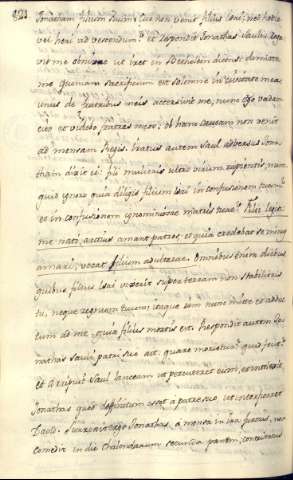 Jonatham filium suum: cur non venit filius Isai, nec hodie
vel heri ad vescendum? Et respondit Jonathas Sauli: Roga-
vit me obnixe ut iret in Bethlehem dicens: dimitte
me quoniam sacrificium est solemne in civitate mea,
unus de fratribus meis accersivit me, nunc ergo vadam
cito, et videbo fratres meos; ob hanc causam non venit
ad mensam Regis. Iratus autem Saul adversus Jona-
tham dixit ei: fili mulieris ultro virum rapientis, num-
quid ignoro quia diligis filium Isai in confusionem tuam
et in confusionem ignominiosae matris tuae?
me nato, acrius amant patres, et quia credebat se minus
amari, vocat filium adulterae. Omnibus enim diebus
quibus filius Isai vixerit super terram non stabilieris
tu, neque regnum tuum; itaque iam nunc mitte et adduc
eum ad me, quia filius mortis est. Respondit autem Jo-
nathas Sauli patri suo ait, quare morietur? quid fecit?
Et arripuit Saul lanceam ut percuteret eum, et intellexit
Jonathas quod definitum esset a patre suo, ut interficeret
David. Surrexit ergo Jonathas, a mensa in ira furoris, non
comedit in die Calendarum secunda panem, contristatus